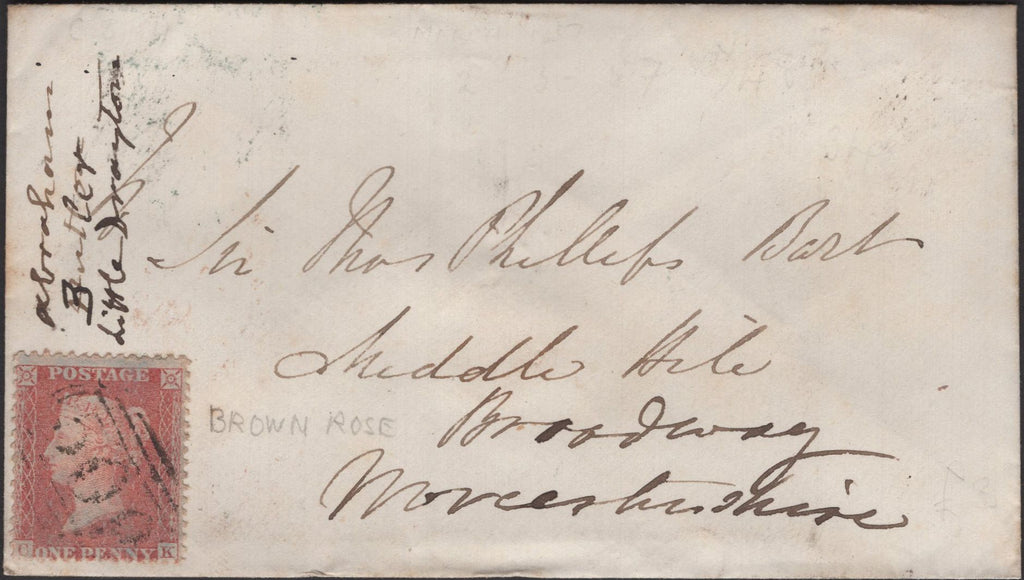 abraham
Butler
Little Drayton
Sir Thos Phillips Bart
Middle Hile
Broadway
Worcestershire
BROWN ROSE
POSTAGE
ONE PENNY
C K